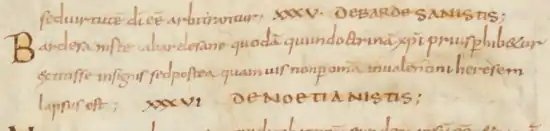 sed uirtutē dī eē arbitrantur, XXXV· DE BARDESANISTIS;
Bardesanistae a bardesane quodā qui in doctrina xp̄i prius phibetur
extitisse insignis sed postea quamuis non p omīa in ualentini heresem
lapsus est; XXXVI DE NOETIANISTIS;